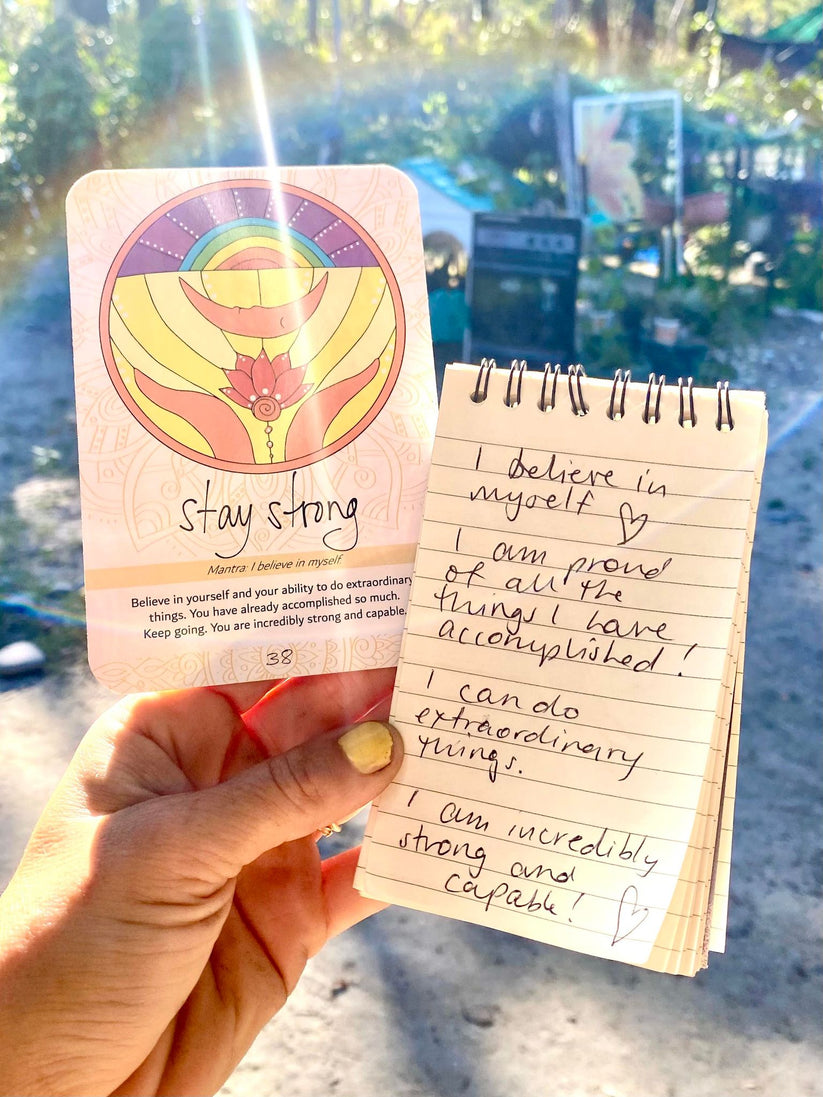 stay strong
Mantra: I believe in myself.
Believe in yourself and your ability to do extraordinary
things. You have already accomplished so much.
Keep going. You are incredibly strong and capable.
38
I believe in
myself ♡
I am proud
of all the
things I have
accomplished!
I can do
extraordinary
things.
I am incredibly
strong and
capable! ♡